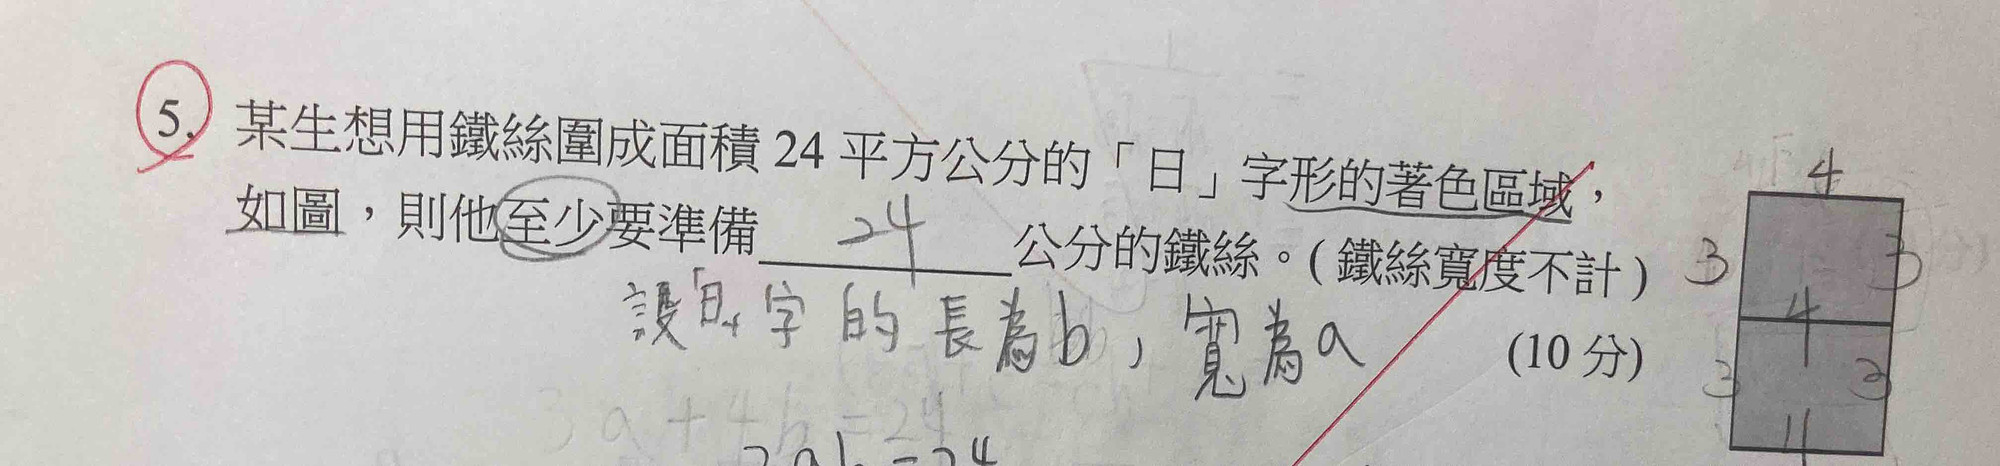 5. 某生想用鐵絲圍成面積 24 平方公分的「日」字形的著色區域，
如圖，則他至少要準備 24 公分的鐵絲。( 鐵絲寬度不計 )
(10 分)
設「日」字的長為b，寬為a
3a+4b=24
2ab=24
4
3 3
4
3 3
4